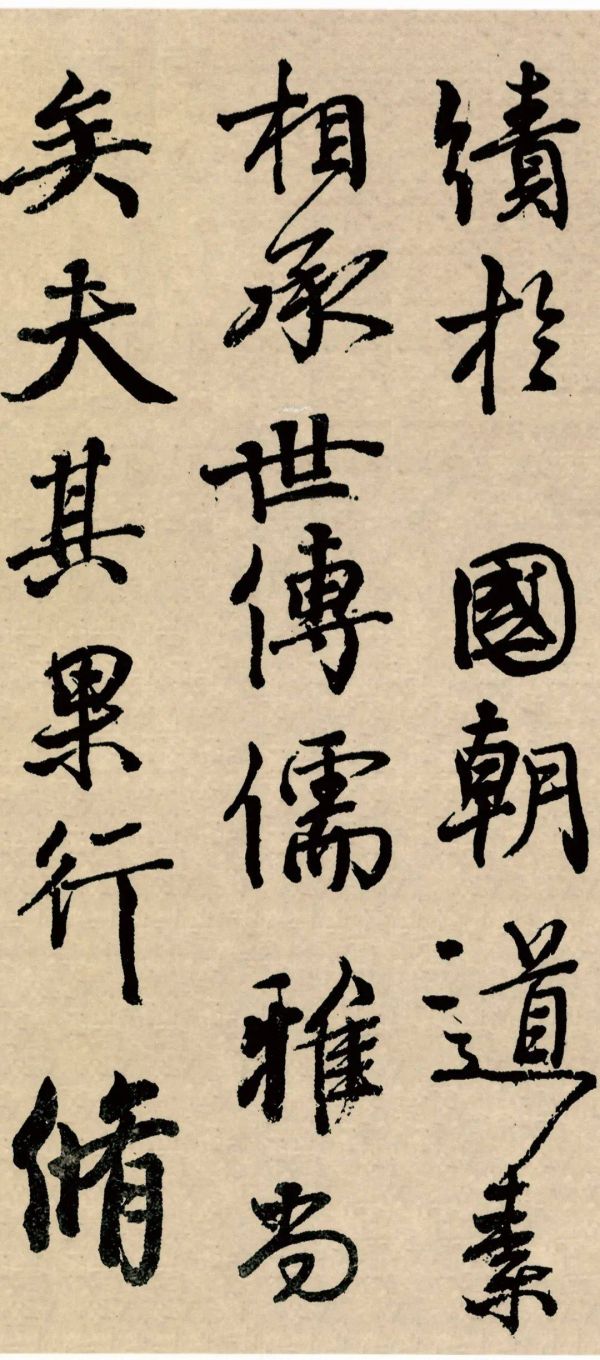 績於 國朝道素
相承世傳儒雅尚
矣夫其果行脩